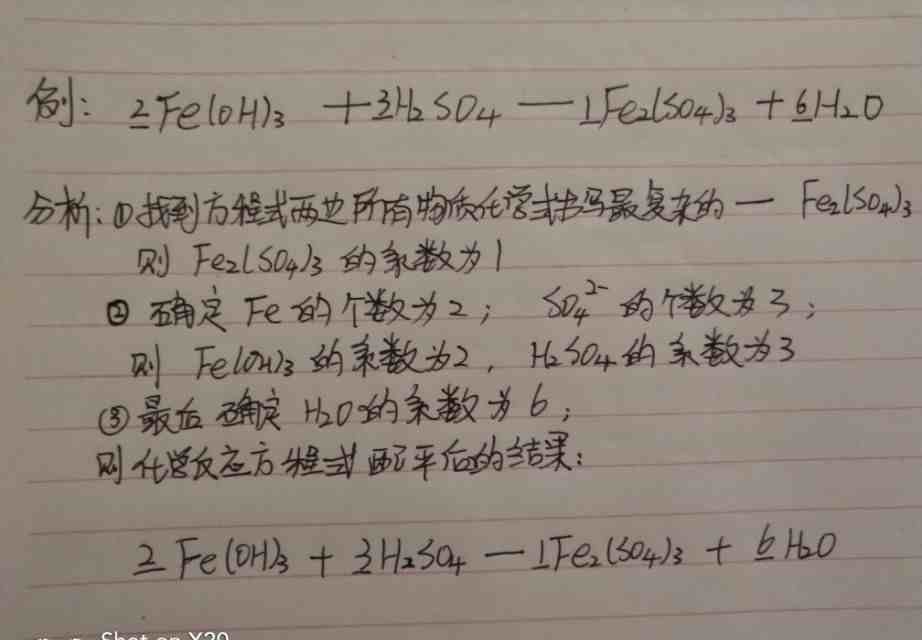 例: 2Fe(OH)₃ + 3H₂SO₄ — 1Fe₂(SO₄)₃ + 6H₂O
分析: ①找到方程式两边所有物质化学式书写最复杂的 — Fe₂(SO₄)₃
则 Fe₂(SO₄)₃ 的系数为1
② 确定 Fe 的个数为2; SO₄²⁻ 的个数为3;
则 Fe(OH)₃ 的系数为2, H₂SO₄的系数为3
③最后确定 H₂O的系数为6;
则化学反应方程式配平后的结果:
2Fe(OH)₃ + 3H₂SO₄ — 1Fe₂(SO₄)₃ + 6H₂O
Shot on X20